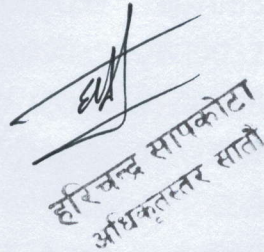 हरिचन्द्र सापकोटा
अधिकृतस्तर सातौं